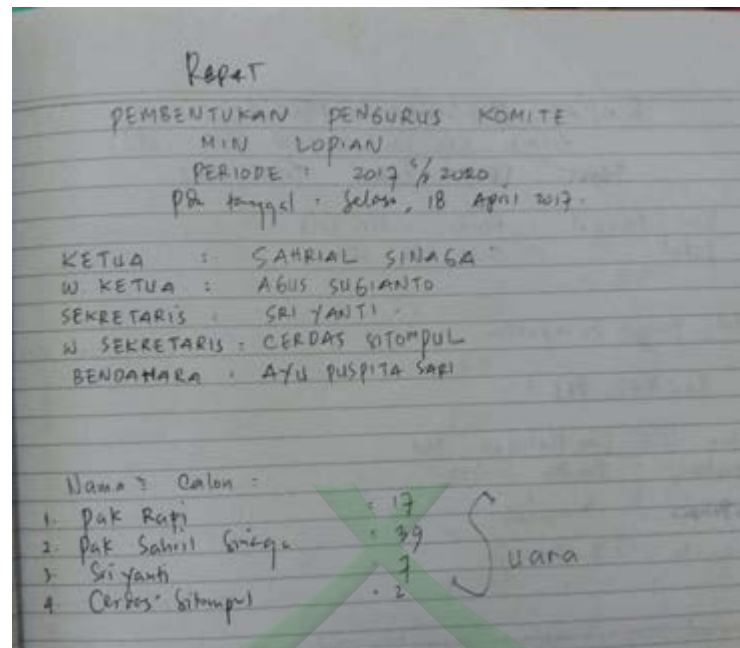 Rapat
PEMBENTUKAN PENGURUS KOMITE
MIN LOPIAN
PERIODE : 2017 s/d 2020
Pd tanggal : Selasa, 18 April 2017.
KETUA : SAHRIAL SINAGA
W. KETUA : AGUS SUGIANTO
SEKRETARIS : SRI YANTI.
W SEKRETARIS : CERDAS SITOMPUL
BENDAHARA : AYU PUSPITA SARI
Nama² Calon :
1. Pak Rapi : 17
2. Pak Sahril Sinaga : 39
3. Sri yanti : 7
4. Cerdas Sitompul : 2
Suara